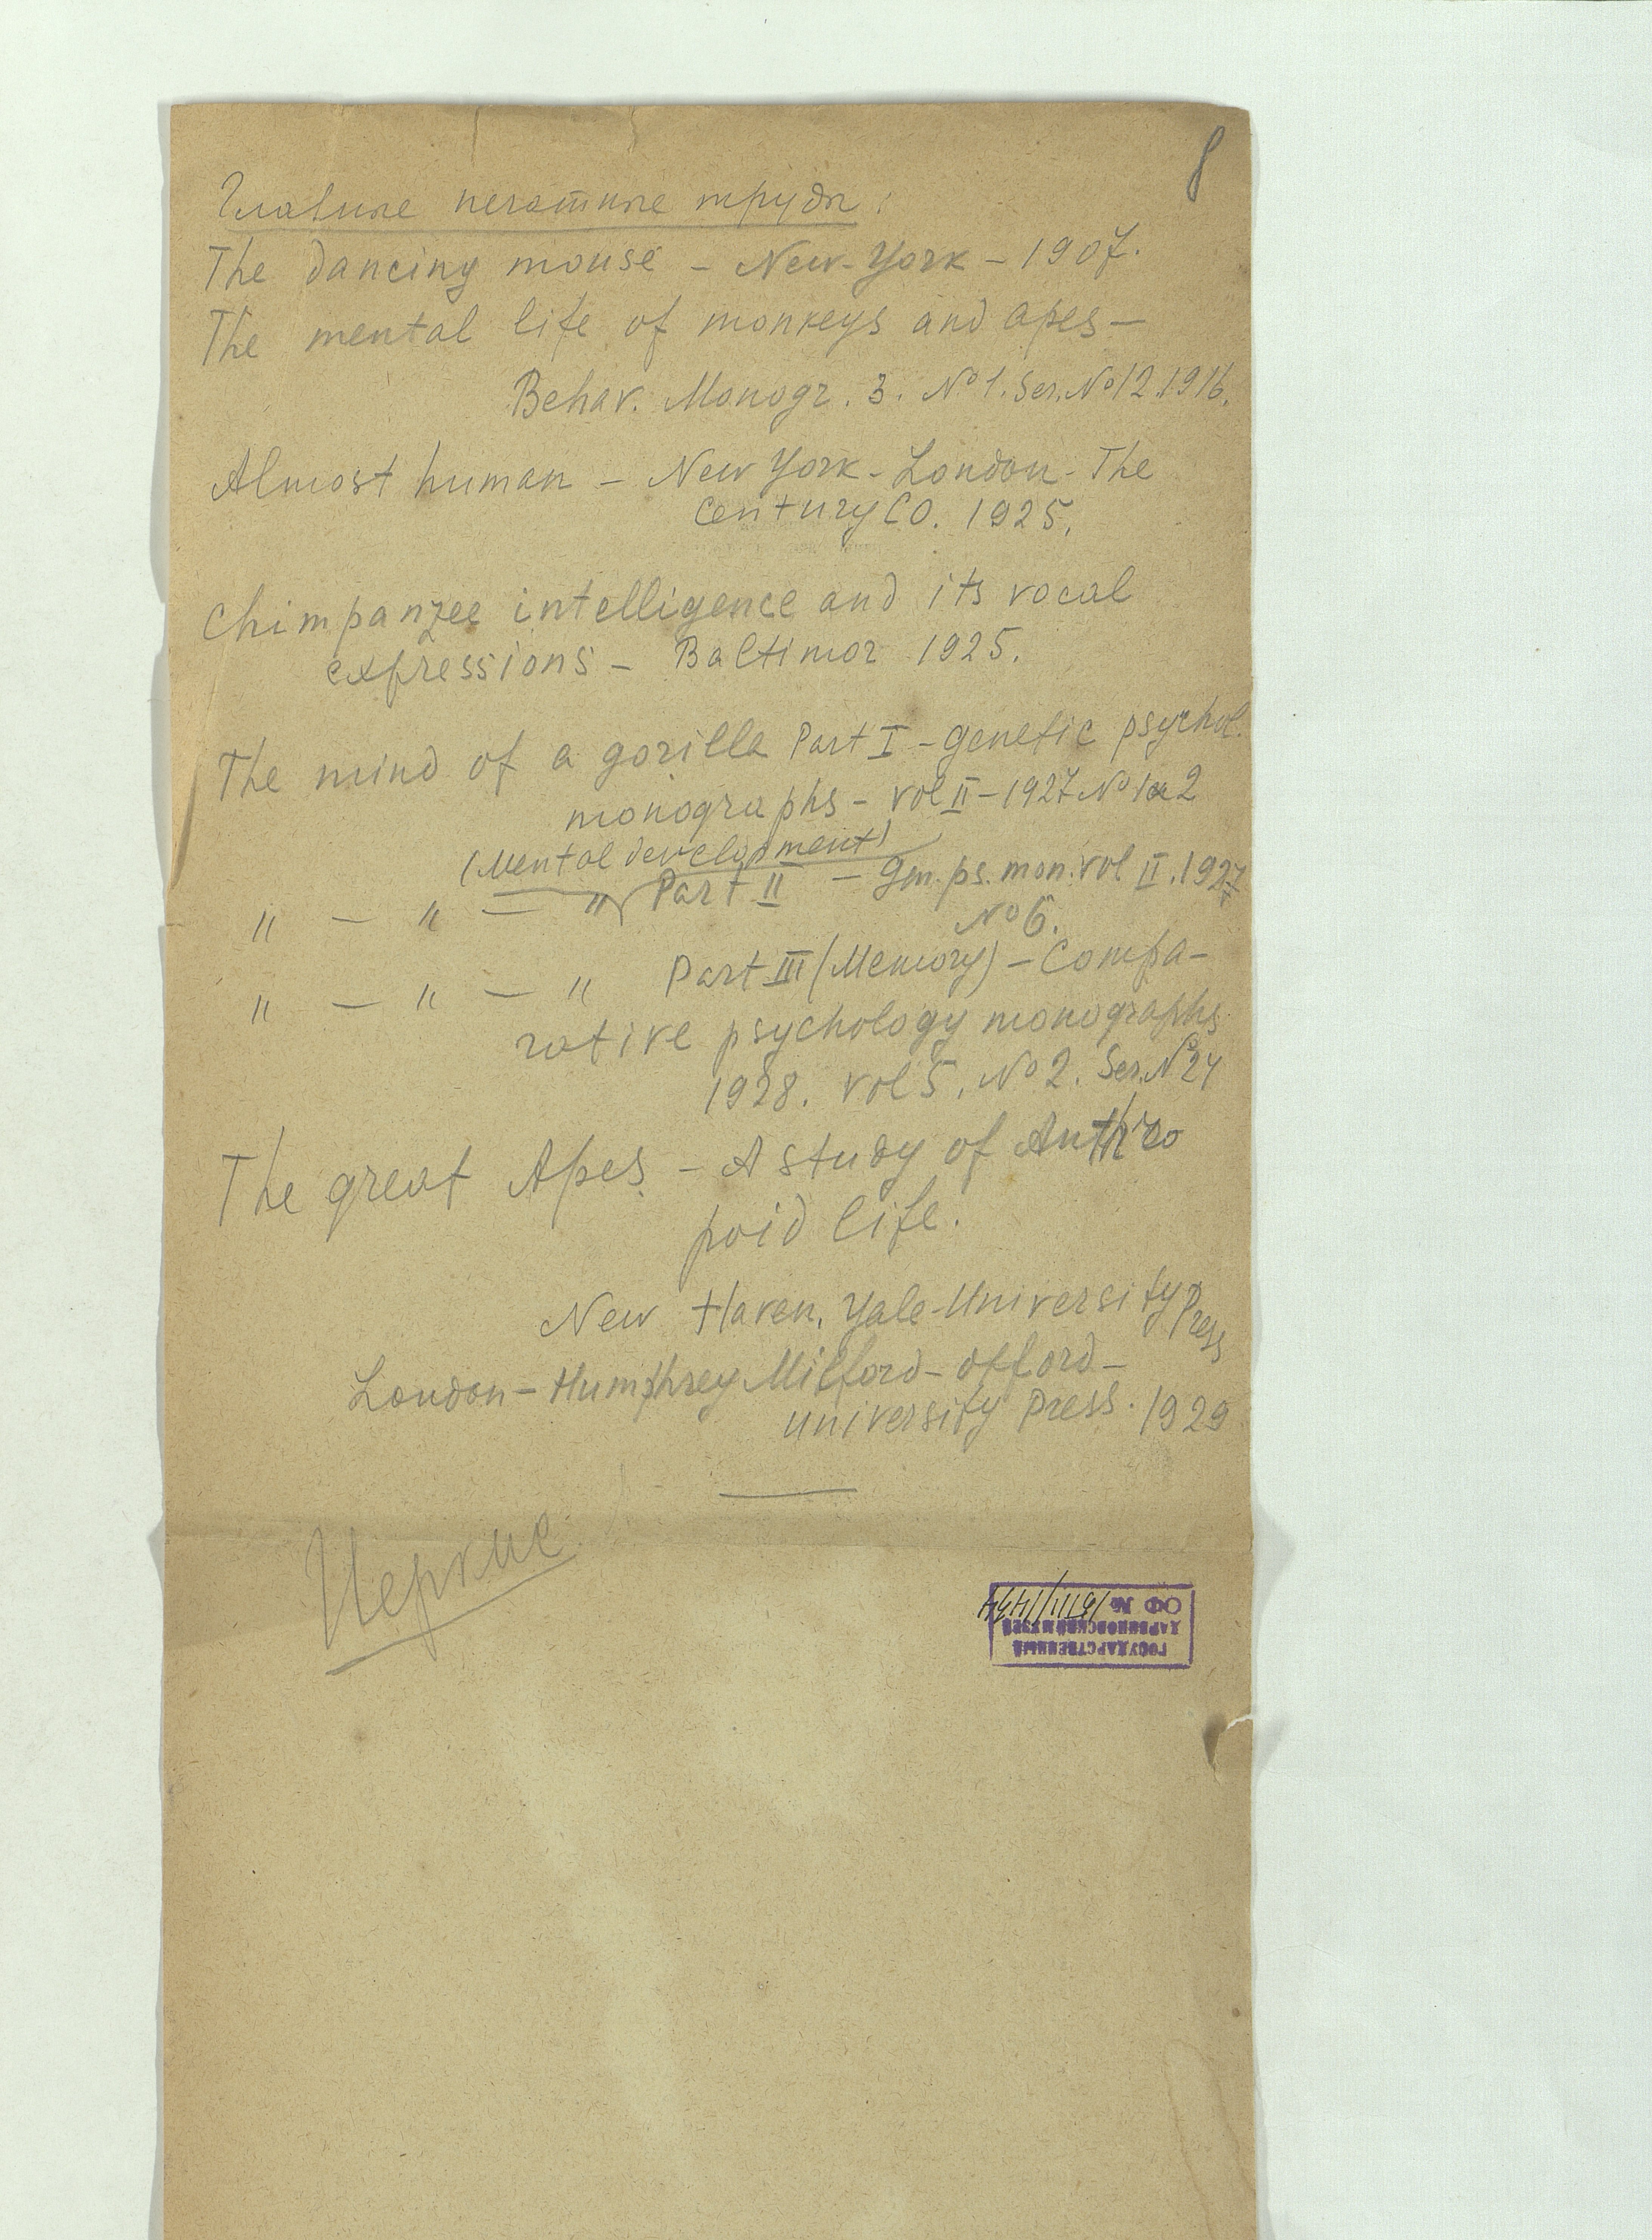 8
Главные печатные труды:
The dancing mouse – New-York – 1907.
The mental life of monkeys and apes –
Behav. Monogr. 3. No 1. Ser. No 12. 1916.
Almost human – New York – London – The
Century CO. 1925.
Chimpanzee intelligence and its vocal
expressions – Baltimor 1925.
The mind of a gorilla Part I – genetic psychol.
monographs – vol II – 1927 No 1 a 2
(Mental development)
" — " — " Part II – gen. ps. mon. vol II. 1927
No 6.
" — " — " Part III (Memory) – Compa-
rative psychology monographs
1928. vol 5. No 2. Ser. No 24
The great Apes – A study of Anthro
poid life.
New Haven, Yale-University Press
London – Humphrey Milford – Offord –
University Press. 1929
Иеркис
ГОСУДАРСТВЕННЫЙ
ДАРВИНОВСКИЙ МУЗЕЙ
ОФ №